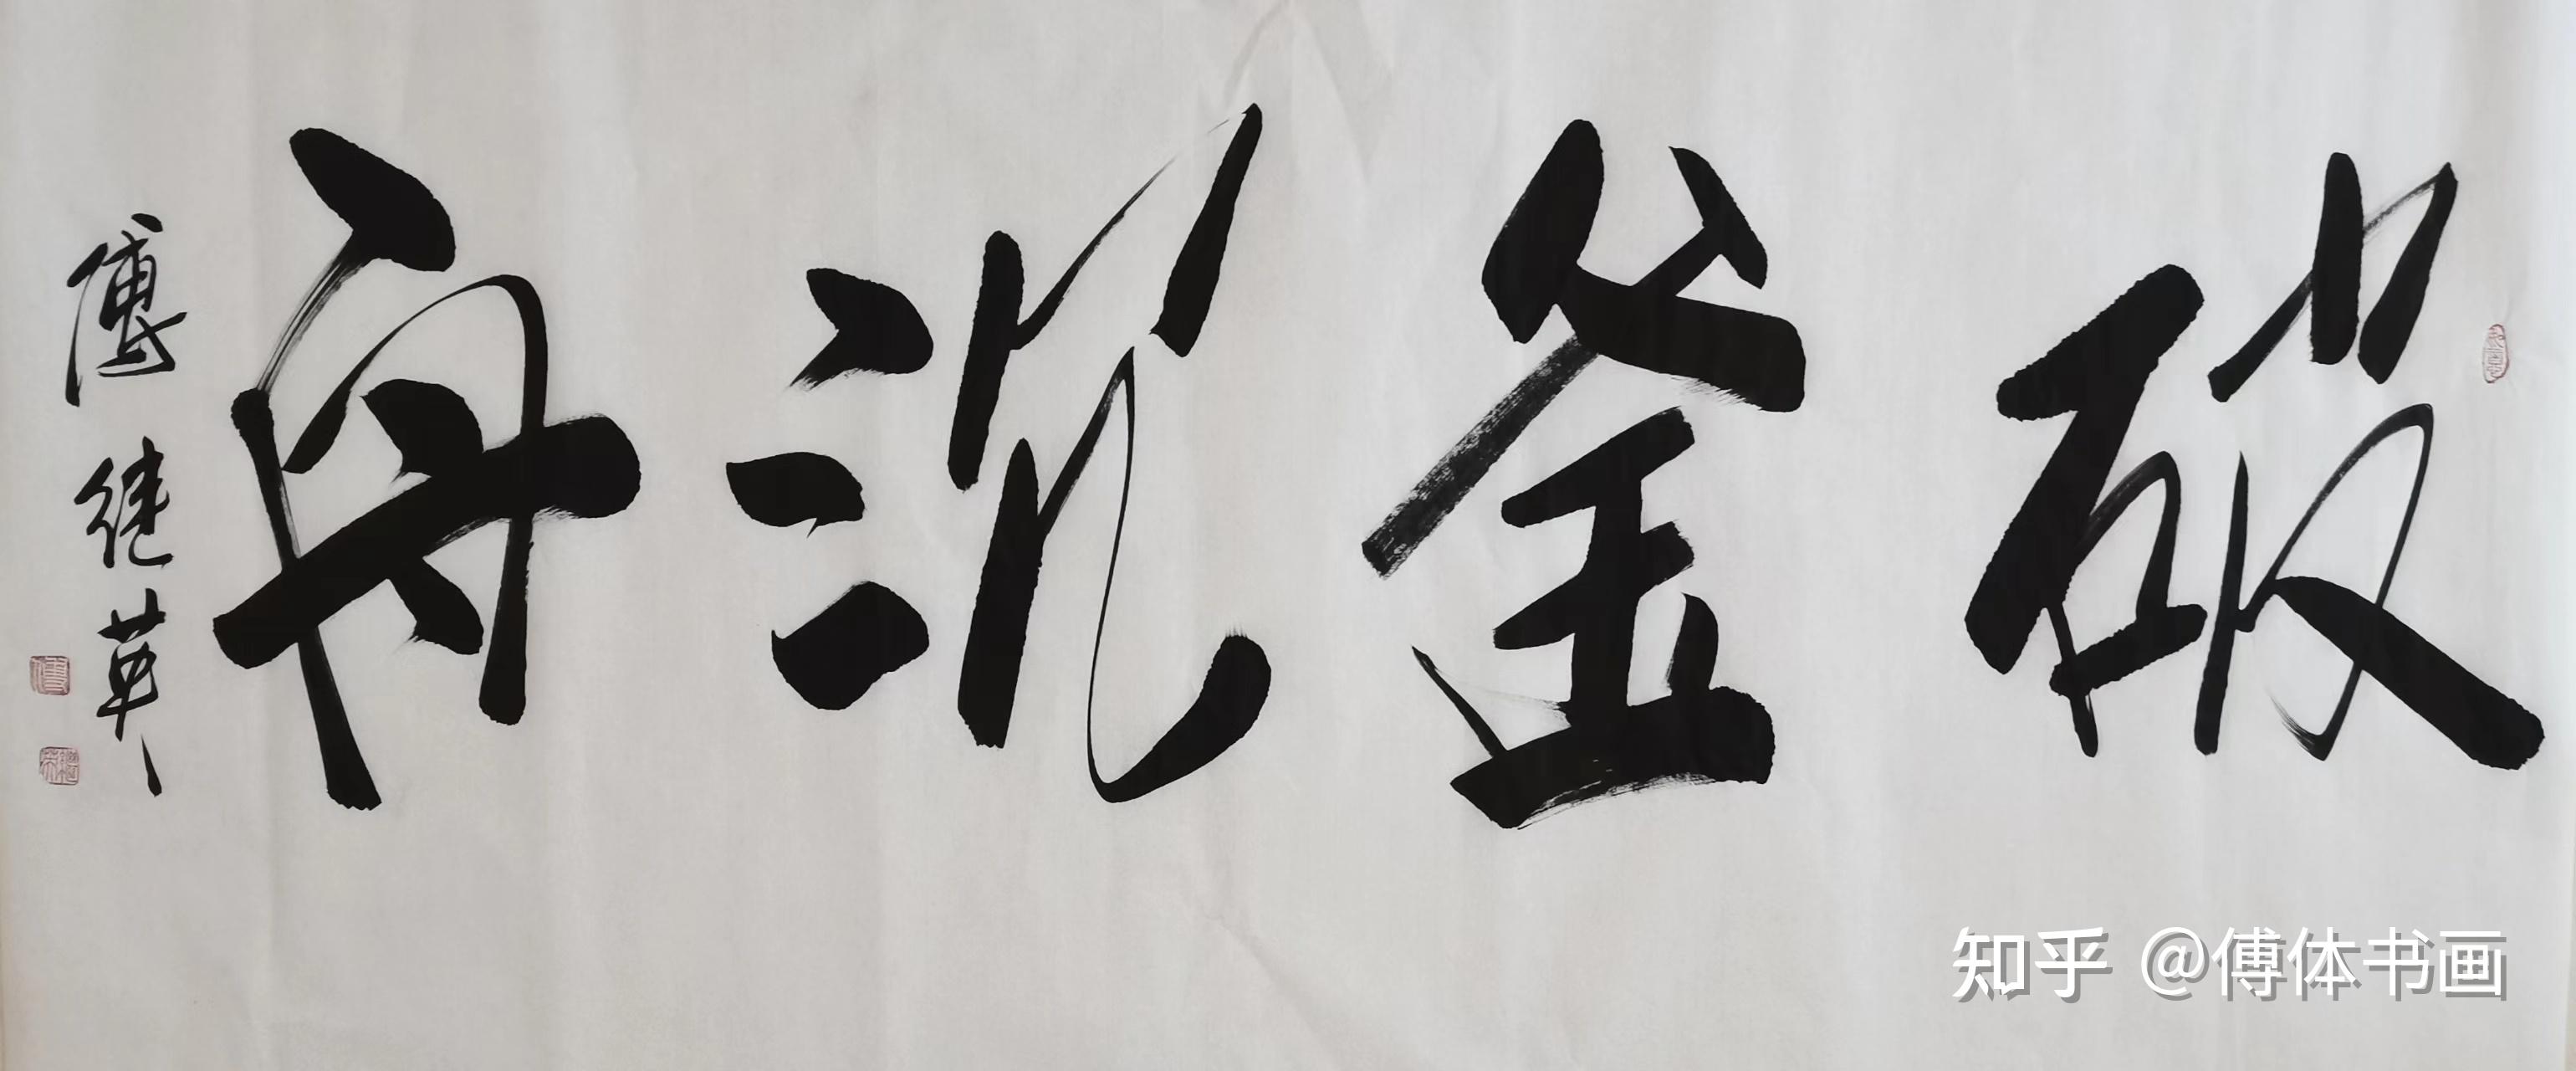 破釜沉舟
傅继英
知乎 @傅体书画